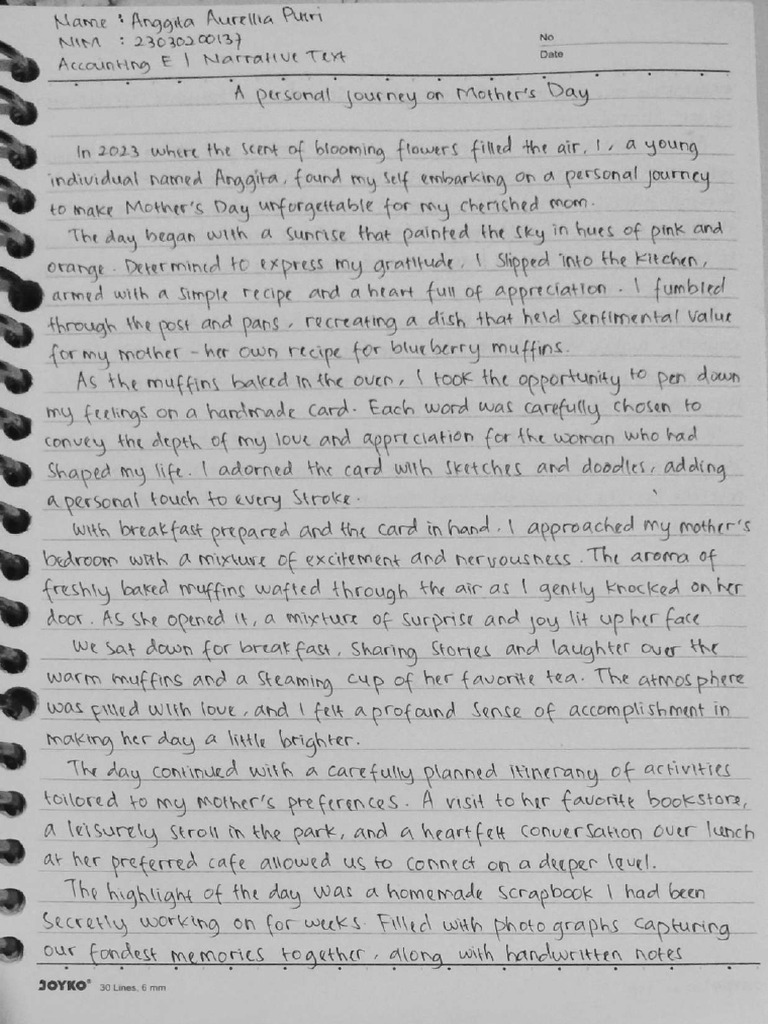 Name : Anggita Aurellia Putri
NIM : 23030200137
Accounting E | Narrative Text
No
Date
A personal journey on Mother's Day
In 2023 where the scent of blooming flowers filled the air, I, a young
individual named Anggita, found my self embarking on a personal journey
to make Mother's Day unforgettable for my cherished mom.
The day began with a sunrise that painted the sky in hues of pink and
orange. Determined to express my gratitude, I slipped into the kitchen,
armed with a simple recipe and a heart full of appreciation. I fumbled
through the post and pans, recreating a dish that held sentimental value
for my mother - her own recipe for blueberry muffins.
As the muffins baked in the oven, I took the opportunity to pen down
my feelings on a handmade card. Each word was carefully chosen to
convey the depth of my love and appreciation for the woman who had
shaped my life. I adorned the card with sketches and doodles, adding
a personal touch to every stroke.
With breakfast prepared and the card in hand. I approached my mother's
bedroom with a mixture of excitement and nervousness. The aroma of
freshly baked muffins wafted through the air as I gently knocked on her
door. As she opened it, a mixture of surprise and joy lit up her face
We sat down for breakfast, sharing stories and laughter over the
warm muffins and a steaming cup of her favorite tea. The atmosphere
was filled with love, and I felt a profound sense of accomplishment in
making her day a little brighter.
The day continued with a carefully planned itinerany of activities
toilored to my mother's preferences. A visit to her favorite bookstore,
a leisurely stroll in the park, and a heartfelt conversation over lunch
at her preferred cafe allowed us to connect on a deeper level.
The highlight of the day was a homemade scrapbook I had been
secretly working on for weeks. Filled with photographs capturing
our fondest memories together, along with handwritten notes
JOYKO® 30 Lines, 6 mm